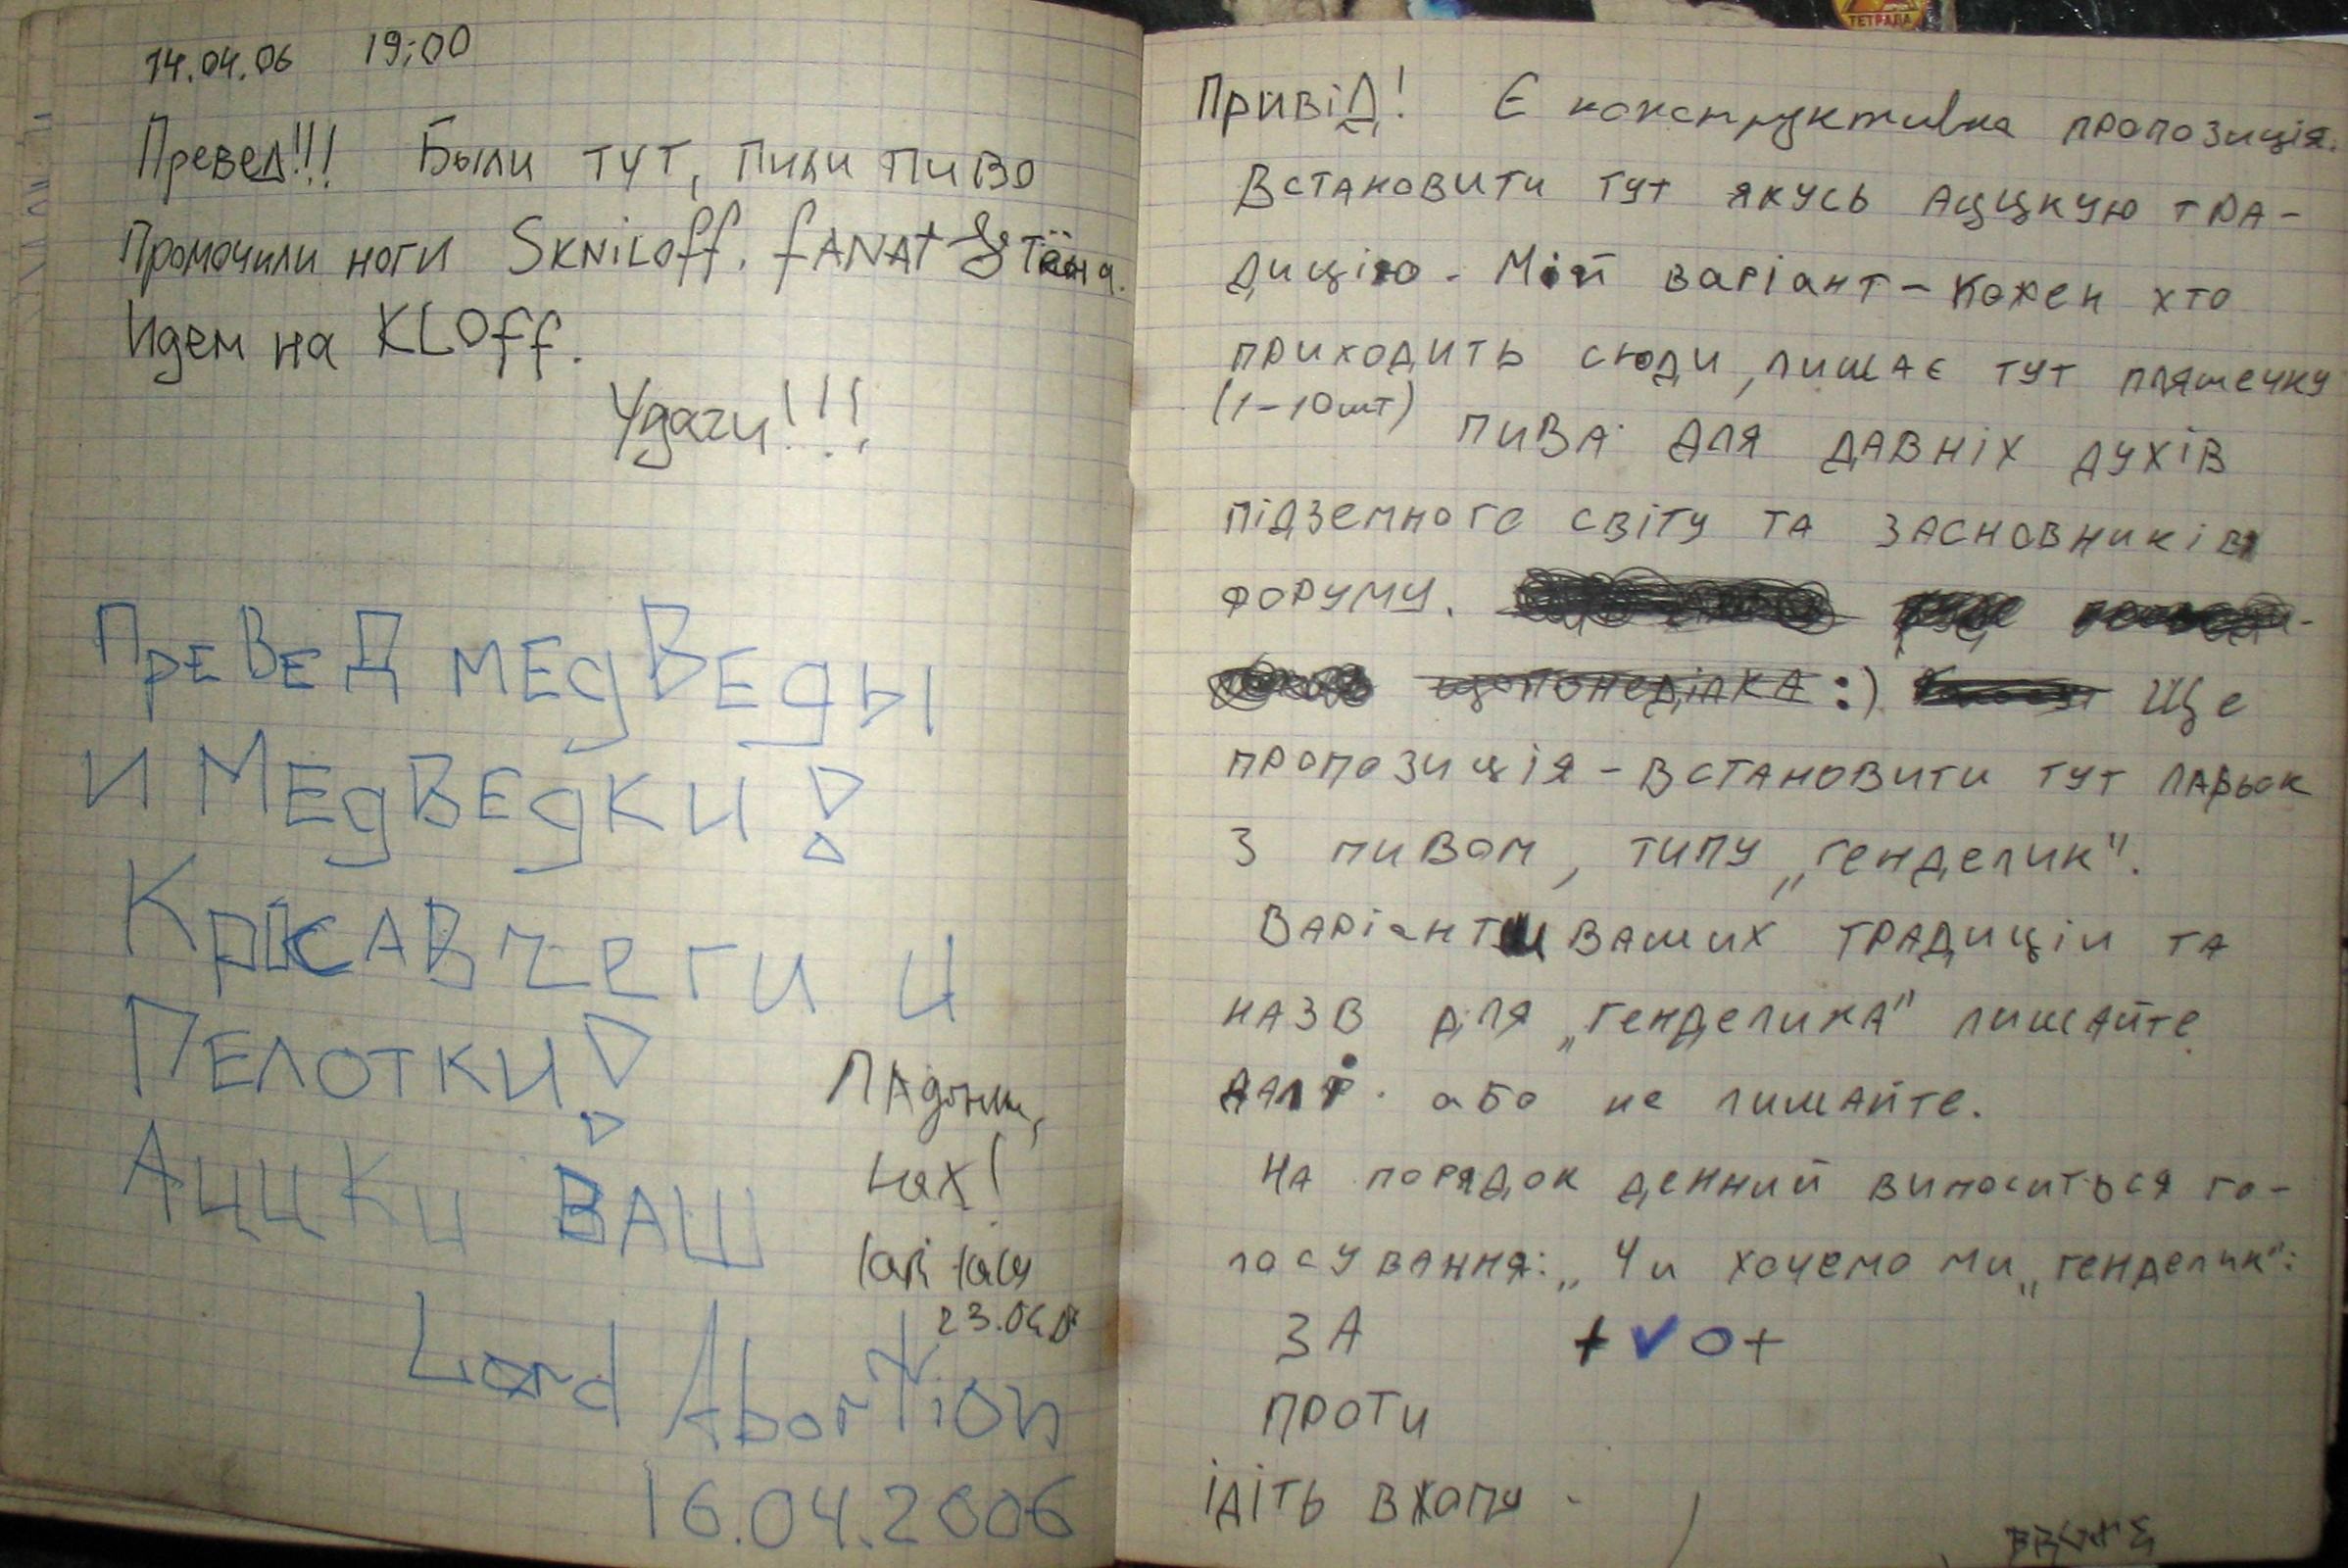 14.04.06 19:00
Превед!!! Были тут, пили пиво
Промочили ноги SKNiLoff, fANAT & Тёна.
Идем на KLOff.
Удачи!!!
ПреВеД МЕдВЕды
и МЕдВЕдки!
КрiсАВчеги и
ПЕЛОТКИ!
Аццки ВАШ
ЛАдонки,
нах!
23.04.06
Lord Abortion
16.04.2006
ТЕТРАДА
Привід! Є конструктивна пропозиція.
Встановити тут якусь аццкую тра-
дицію. Мій варіант - кожен хто
приходить сюди, лишає тут пляшечку
(1-10шт) пива для давніх духів
підземного світу та засновників
форуму.
щопонеділка :) Ще
пропозиція - встановити тут ларьок
з пивом, типу „генделик".
Варіанти ваших традиціи та
назв для „генделика" лишайте
далі. або не лишайте.
На порядок денний виноситься го-
лосування: „Чи хочемо ми „генделик":
ЗА + V O +
ПРОТИ
ідіть в жопу -